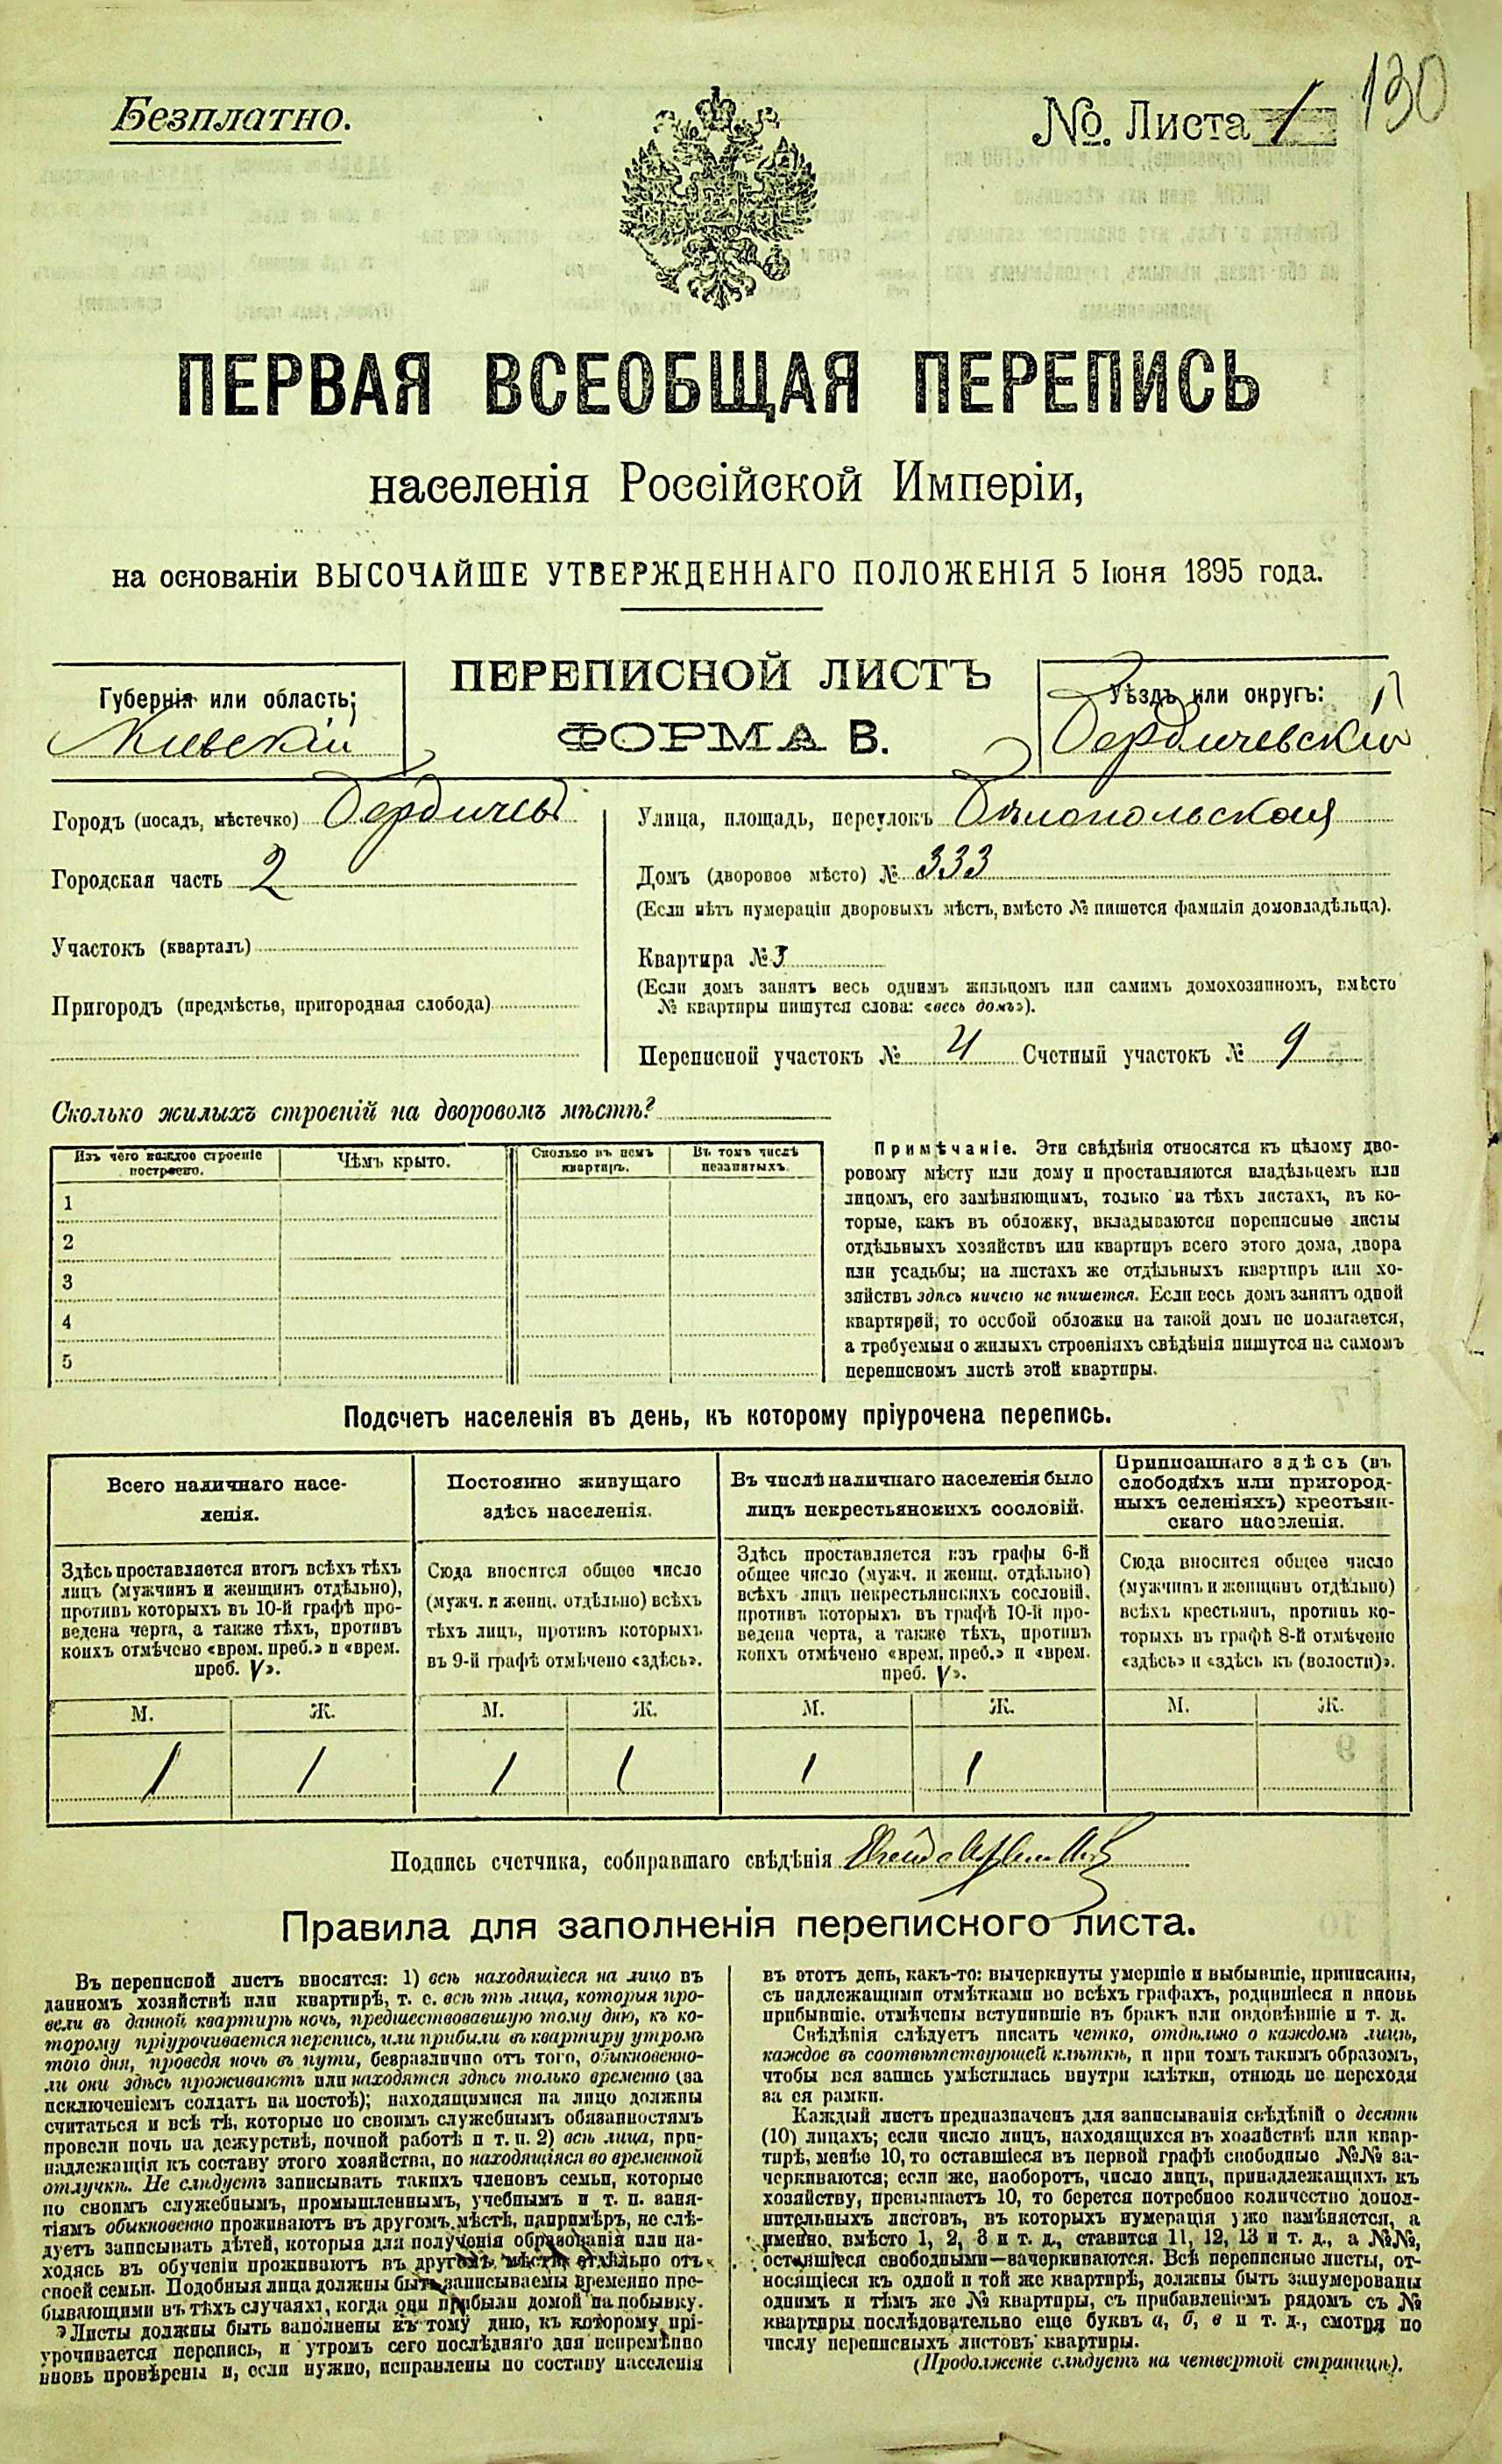 130
Безплатно.
№. Листа 1
ПЕРВАЯ ВСЕОБЩАЯ ПЕРЕПИСЬ
населенія Россійской Имперіи,
на основаніи ВЫСОЧАЙШЕ УТВЕРЖДЕННАГО ПОЛОЖЕНІЯ 5 Іюня 1895 года.
ПЕРЕПИСНОЙ ЛИСТЪ
ФОРМА В.
Губернія или область:
Кіевскій
Уѣздъ или округъ:
Бердичевскій
Городъ (посадъ, мѣстечко) Бердичевъ
Городская часть 2
Участокъ (кварталъ)
Пригородъ (предмѣстье, пригородная слобода)
Улица, площадь, переулокъ Бѣлопольская
Домъ (дворовое мѣсто) № 333
(Если нѣтъ нумераціи дворовыхъ мѣстъ, вмѣсто № пишется фамилія домовладѣльца).
Квартира № 3
(Если домъ занятъ весь однимъ жильцомъ или самимъ домохозяиномъ, вмѣсто
№ квартиры пишутся слова: «весь домъ»).
Переписной участокъ № 4 Счетный участокъ № 9
Сколько жилыхъ строеній на дворовомъ мѣстѣ?
Изъ чего каждое строеніе
построено.
Чѣмъ крыто.
Сколько въ немъ
квартиръ.
Въ томъ числѣ
незанятыхъ.
1
2
3
4
5
Примѣчаніе. Эти свѣдѣнія относятся къ цѣлому дво-
ровому мѣсту или дому и проставляются владѣльцемъ или
лицомъ, его замѣняющимъ, только на тѣхъ листахъ, въ ко-
торые, какъ въ обложку, вкладываются переписные листы
отдѣльныхъ хозяйствъ или квартиръ всего этого дома, двора
или усадьбы; на листахъ же отдѣльныхъ квартиръ или хо-
зяйствъ здѣсь ничего не пишется. Если весь домъ занятъ одной
квартирой, то особой обложки на такой домъ не полагается,
а требуемыя о жилыхъ строеніяхъ свѣдѣнія пишутся на самомъ
переписномъ листѣ этой квартиры.
Подсчетъ населенія въ день, къ которому пріурочена перепись.
Всего наличнаго насе-
ленія.
Здѣсь проставляется итогъ всѣхъ тѣхъ
лицъ (мужчинъ и женщинъ отдѣльно),
противъ которыхъ въ 10-й графѣ про-
ведена черта, а также тѣхъ, противъ
коихъ отмѣчено «врем. преб.» и «врем.
преб. V».
М. Ж.
1 1
Постоянно живущаго
здѣсь населенія.
Сюда вносится общее число
(мужч. и женщ. отдѣльно) всѣхъ
тѣхъ лицъ, противъ которыхъ
въ 9-й графѣ отмѣчено «здѣсь».
М. Ж.
1 1
Въ числѣ наличнаго населенія было
лицъ некрестьянскихъ сословій.
Здѣсь проставляется изъ графы 6-й
общее число (мужч. и женщ. отдѣльно)
всѣхъ лицъ некрестьянскихъ сословій,
противъ которыхъ въ графѣ 10-й про-
ведена черта, а также тѣхъ, противъ
коихъ отмѣчено «врем. преб.» и «врем.
преб. V».
М. Ж.
1 1
Приписаннаго здѣсь (въ
слободахъ или пригород-
ныхъ селеніяхъ) крестьян-
скаго населенія.
Сюда вносится общее число
(мужчинъ и женщинъ отдѣльно)
всѣхъ крестьянъ, противъ ко-
торыхъ въ графѣ 8-й отмѣчено
«здѣсь» и «здѣсь къ (волости)».
М. Ж.
Подпись счетчика, собиравшаго свѣдѣнія
Правила для заполненія переписного листа.
Въ переписной листъ вносятся: 1) всѣ находящіеся на лицо въ
данномъ хозяйствѣ или квартирѣ, т. е. всѣ тѣ лица, которыя про-
вели въ данной квартирѣ ночь, предшествовавшую тому дню, къ ко-
торому пріурочивается перепись, или прибыли въ квартиру утромъ
того дня, проведя ночь въ пути, безразлично отъ того, обыкновенно-
ли они здѣсь проживаютъ или находятся здѣсь только временно (за
исключеніемъ солдатъ на постоѣ); находящимися на лицо должны
считаться и всѣ тѣ, которые по своимъ служебнымъ обязанностямъ
провели ночь на дежурствѣ, ночной работѣ и т. п. 2) всѣ лица, при-
надлежащія къ составу этого хозяйства, но находящіяся во временной
отлучкѣ. Не слѣдуетъ записывать такихъ членовъ семьи, которые
по своимъ служебнымъ, промышленнымъ, учебнымъ и т. п. заня-
тіямъ обыкновенно проживаютъ въ другомъ мѣстѣ, напримѣръ, не слѣ-
дуетъ записывать дѣтей, которыя для полученія образованія или на-
ходясь въ обученіи проживаютъ въ другомъ мѣстѣ отдѣльно отъ
своей семьи. Подобныя лица должны быть записываемы временно пре-
бывающими въ тѣхъ случаяхъ, когда они прибыли домой на побывку.
Листы должны быть заполнены къ тому дню, къ которому прі-
урочивается перепись, и утромъ сего послѣдняго дня непремѣнно
вновь провѣрены и, если нужно, исправлены по составу населенія
въ этотъ день, какъ-то: вычеркнуты умершіе и выбывшіе, приписаны,
съ надлежащими отмѣтками во всѣхъ графахъ, родившіеся и вновь
прибывшіе, отмѣчены вступившіе въ бракъ или овдовѣвшіе и т. д.
Свѣдѣнія слѣдуетъ писать четко, отдѣльно о каждомъ лицѣ,
каждое въ соотвѣтствующей клѣткѣ, и при томъ такимъ образомъ,
чтобы вся запись умѣстилась внутри клѣтки, отнюдь не переходя
за ея рамки.
Каждый листъ предназначенъ для записыванія свѣдѣній о десяти
(10) лицахъ; если число лицъ, находящихся въ хозяйствѣ или квар-
тирѣ, менѣе 10, то оставшіеся въ первой графѣ свободные №№ за-
черкиваются; если же, наоборотъ, число лицъ, принадлежащихъ къ
хозяйству, превышаетъ 10, то берется потребное количество допол-
нительныхъ листовъ, въ которыхъ нумерація уже измѣняется, а
именно, вмѣсто 1, 2, 3 и т. д., ставится 11, 12, 13 и т. д., а №№,
оставшіеся свободными—зачеркиваются. Всѣ переписные листы, от-
носящіеся къ одной и той же квартирѣ, должны быть занумерованы
однимъ и тѣмъ же № квартиры, съ прибавленіемъ рядомъ съ №
квартиры послѣдовательно еще буквъ а, б, в и т. д., смотря по
числу переписныхъ листовъ квартиры.
(Продолженіе слѣдуетъ на четвертой страницѣ).